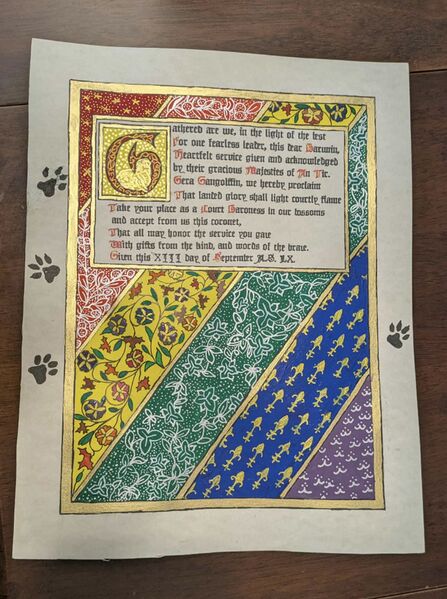 Gathered are we, in the light of the
For one fearless leader, this dear
Heartfelt service given and acknowledged
by their gracious Majesties of An Tir.
Gera Gangolffin, we hereby proclaim
That landed glory shall light courtly flame
Take your place as a Court Baroness in our bosoms
and accept from us this coronet,
That all may honor the service you gave
With gifts from the kind, and words of the brave.
Given this XIII day of September A.S. LX.